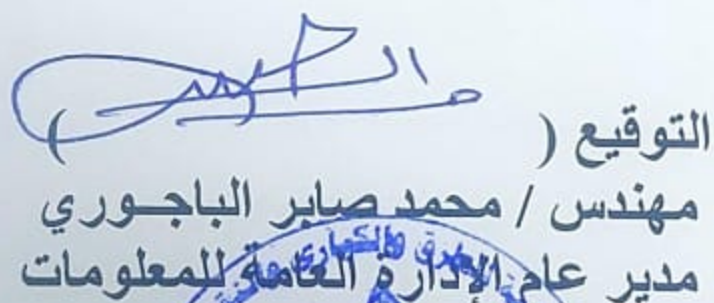 التوقيع (                    )
مهندس / محمد صابر الباجوري
مدير عام الإدارة العامة للمعلومات
والكباري